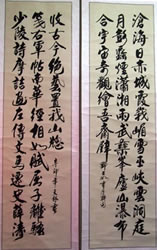 滄海日赤城霞峨嵋雪巫峽雲洞庭
月彭蠡煙瀟湘雨武夷峯廬山瀑布
合宇宙奇觀繪吾齋壁
少陵詩摩詰畫左傳文馬遷史薛濤
箋右軍帖南華經相如賦屈子離騷
收古今絕藝置我山窗